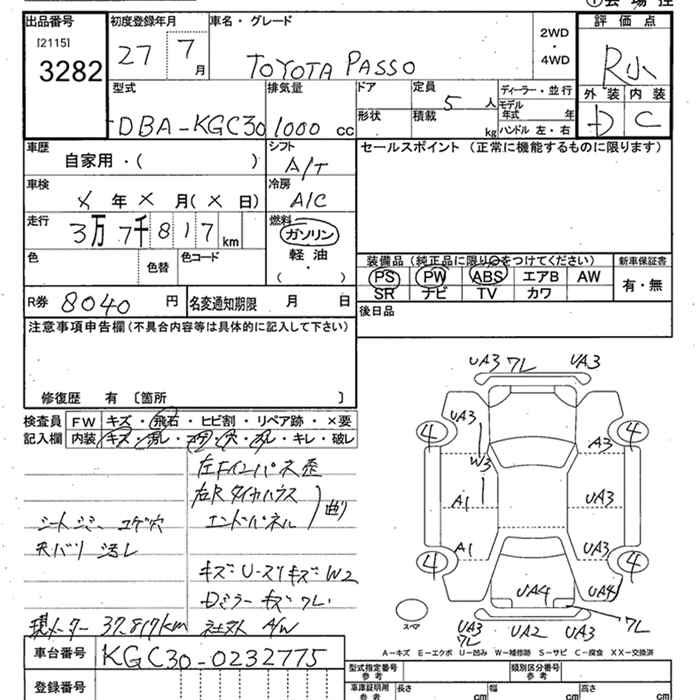 ①会場控
出品番号 初度登録年月 車名・グレード 2WD・4WD 評価点
[2115]
3282
27 7月 TOYOTA PASSO R小
型式 排気量 ドア 定員 5人 ディーラー・並行 外装 内装
DBA-KGC30 1000cc 形状 積載 kg モデル年式 年 ハンドル 左・右 D C
車歴 自家用・( ) シフト A/T セールスポイント(正常に機能するものに限ります)
車検 X年X月(X日) 冷房 A/C
走行 3万7千817km 燃料 ガソリン 軽油・
色 色替 色コード
装備品(純正品に限り○をつけてください) 新車保証書
PS PW ABS エアB AW 有・無
SR ナビ TV カワ
R券 8040円 名変通知期限 月 日 後日品
注意事項申告欄(不具合内容等は具体的に記入して下さい)
修復歴 有 〔箇所 〕
検査員 FW キズ・飛石・ヒビ割・リペア跡・×要
記入欄 内装 キズ・汚レ・コゲ・穴・スレ・キレ・破レ
左Fインパネ歪
右Rタイヤハウス
エンドパネル 曲り
シートシミ コゲ穴
天バリ 汚レ
キズU-スリキズW2
Dミラーキズワレ
現メーター37,817km 社外A/W
車台番号 KGC30-0232775
登録番号
UA3 ワレ UA3
UA3
4 4
W3 A3
A1 UA3
A1 UA3
4 4
UA4 UA4
スペア
UA3 ワレ UA2 UA3 ワレ
A-キズ E-エクボ U-凹み W-補修跡 S-サビ C-腐食 XX-交換済
型式指定番号 参考 類別区分番号 参考
車庫証明用 参考 長さ cm 幅 cm 高さ cm